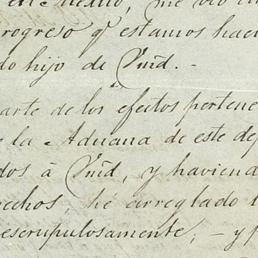 en Mexico, me vio
progreso q estamos haci
do hijo de Vmd. -
arte de los efectos pertene
la Aduana de este de
dos à Vmd, y haviend
echos, he arreglado
escrupulosamente; - y